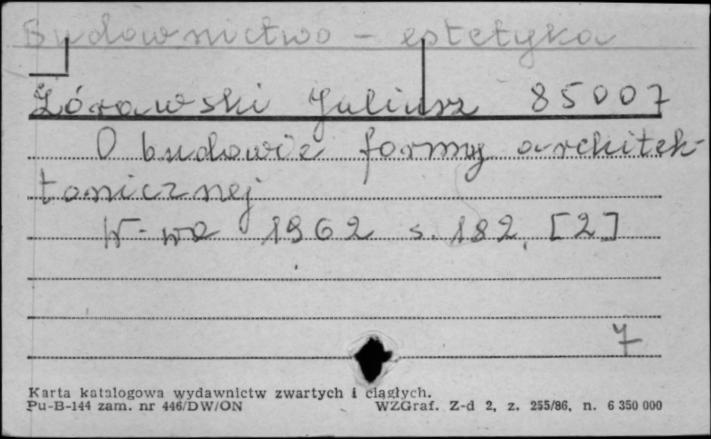 Budownictwo - estetyka
Żórawski Juliusz 85007
O budowie formy architek-
tonicznej
W-wa 1962 s. 182, [2]
7
Karta katalogowa wydawnictw zwartych i ciągłych.
Pu-B-144 zam. nr 446/DW/ON WZGraf. Z-d 2, z. 255/86, n. 6 350 000